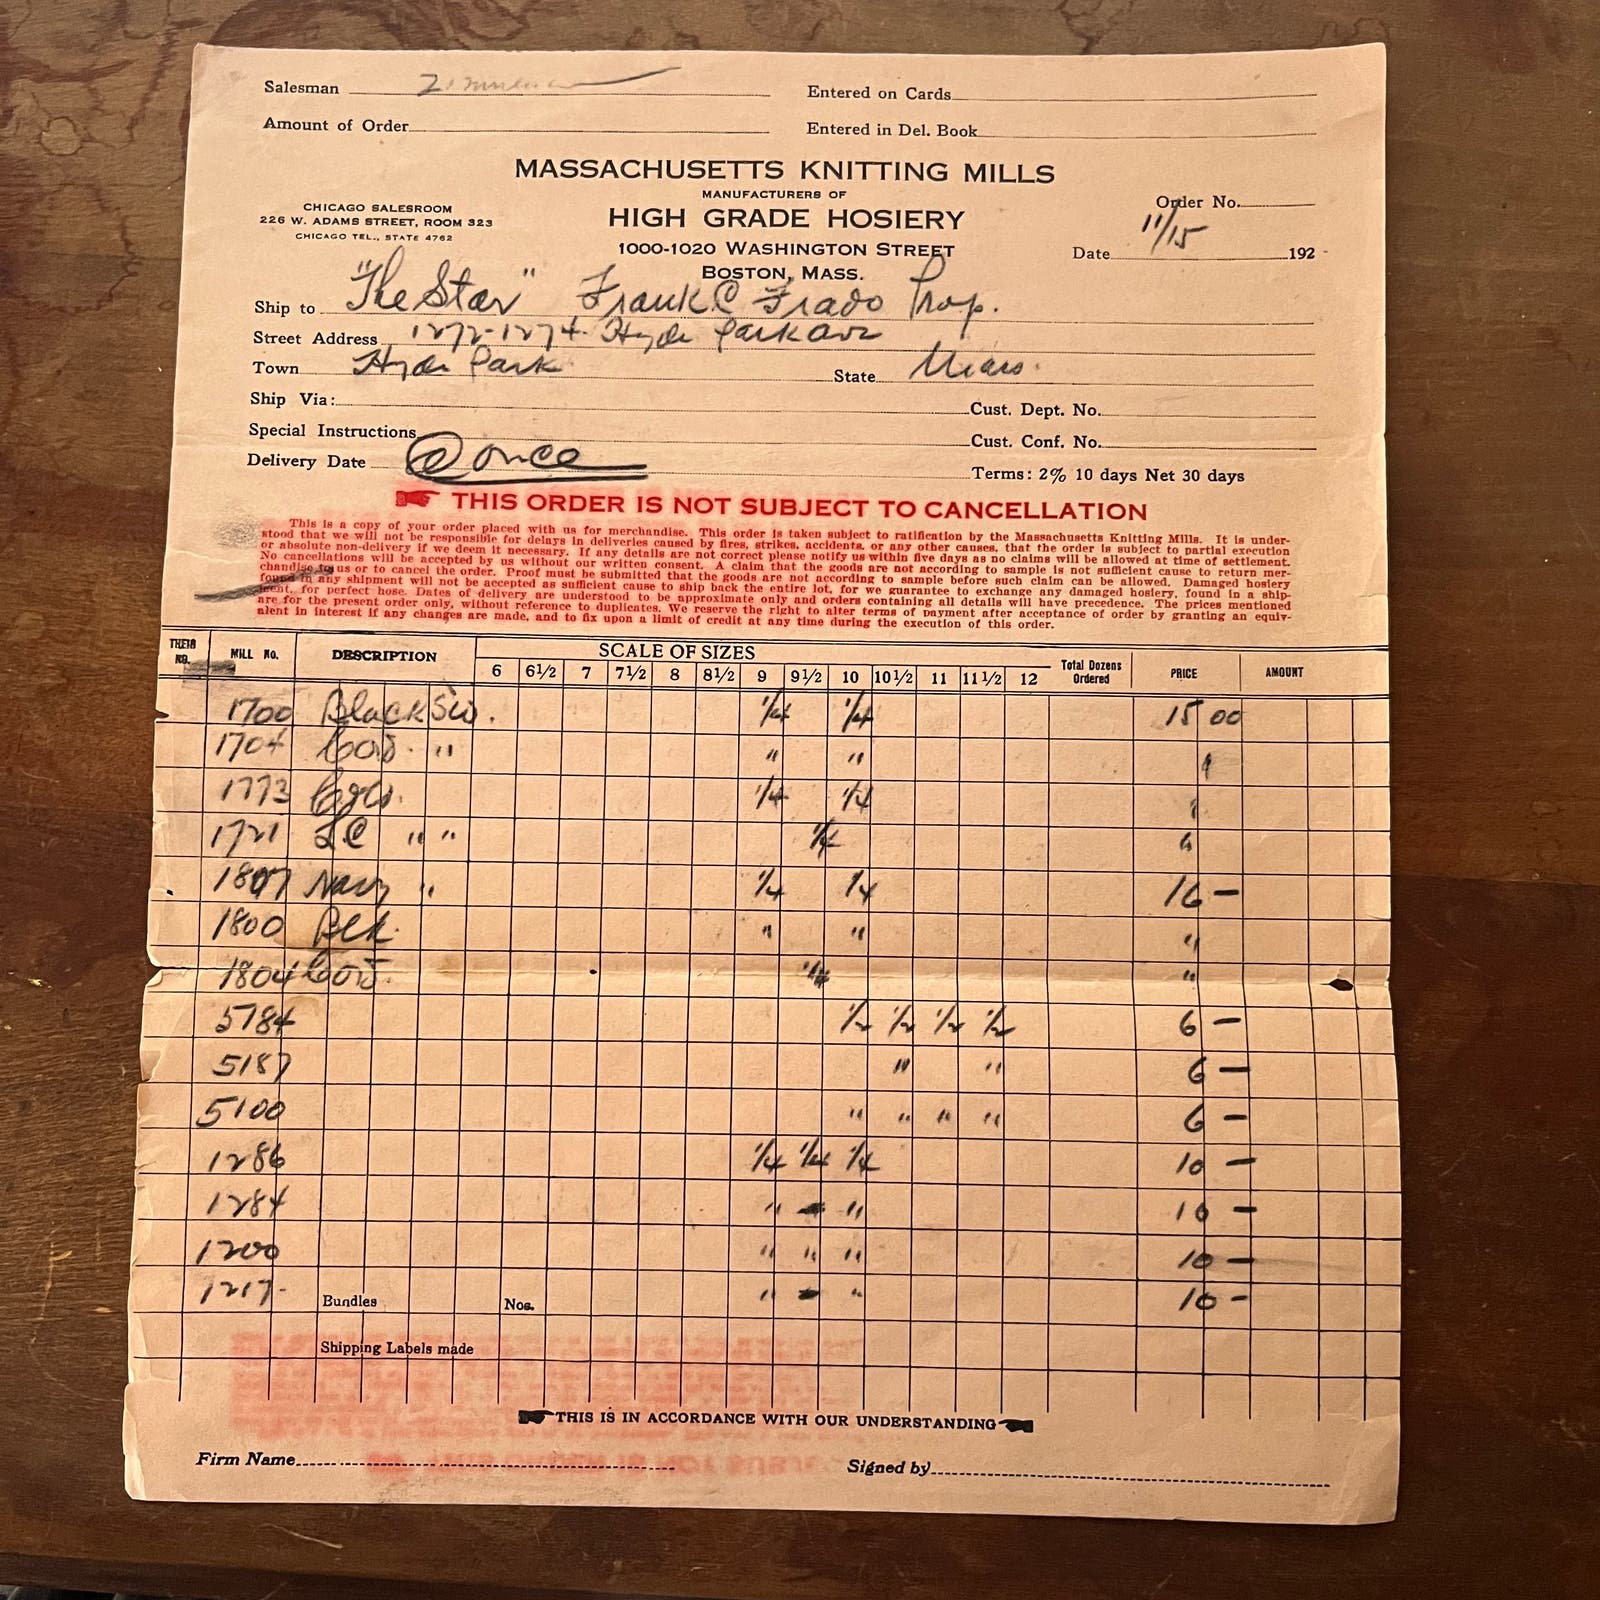 Salesman
Entered on Cards
Amount of Order
Entered in Del. Book
MASSACHUSETTS KNITTING MILLS
MANUFACTURERS OF
HIGH GRADE HOSIERY
1000-1020 WASHINGTON STREET
BOSTON, MASS.
CHICAGO SALESROOM
226 W. ADAMS STREET, ROOM 323
CHICAGO TEL., STATE 4762
Order No.
Date 11/15 192
Ship to "The Star" Frank C Frado Prop.
Street Address 1272-1274 Hyde Park Ave
Town Hyde Park State Mass.
Ship Via: Cust. Dept. No.
Special Instructions Cust. Conf. No.
Delivery Date @ once Terms: 2% 10 days Net 30 days
THIS ORDER IS NOT SUBJECT TO CANCELLATION
This is a copy of your order placed with us for merchandise. This order is taken subject to ratification by the Massachusetts Knitting Mills. It is under-
stood that we will not be responsible for delays in deliveries caused by fires, strikes, accidents, or any other causes, that the order is subject to partial execution
or absolute non-delivery if we deem it necessary. If any details are not correct please notify us within five days as no claims will be allowed at time of settlement.
No cancellations will be accepted by us without our written consent. A claim that the goods are not according to sample is not sufficient cause to return mer-
chandise to us or to cancel the order. Proof must be submitted that the goods are not according to sample before such claim can be allowed. Damaged hosiery
found in any shipment will not be accepted as sufficient cause to ship back the entire lot, for we guarantee to exchange any damaged hosiery, found in a ship-
ment, for perfect hose. Dates of delivery are understood to be approximate only and orders containing all details will have precedence. The prices mentioned
are for the present order only, without reference to duplicates. We reserve the right to alter terms of payment after acceptance of order by granting an equiv-
alent in interest if any changes are made, and to fix upon a limit of credit at any time during the execution of this order.
THEIR NO. MILL NO. DESCRIPTION SCALE OF SIZES Total Dozens Ordered PRICE AMOUNT
6 6½ 7 7½ 8 8½ 9 9½ 10 10½ 11 11½ 12
1700 Black 1/4 1/4 15 00
1704 " " "
1773 1/4 1/4
1721 " " 1/4 "
1807 Navy " 1/4 1/4 16 -
1800 Blk. " " "
1804 1/4 "
5784 1/2 1/2 1/2 1/2 6 -
5187 " " 6 -
5100 " " " " 6 -
1286 1/4 1/4 1/4 10 -
1284 " " 10 -
1200 " " " 10 -
1217- " " 10 -
Bundles Nos.
Shipping Labels made
THIS IS IN ACCORDANCE WITH OUR UNDERSTANDING
Firm Name Signed by